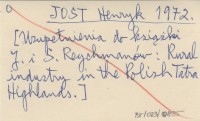 JOST Henryk 1972.
[Uzupełnienia do książki
J. i S. Reychmanów: Rural
industry in the Polish Tatra
Highlands.]